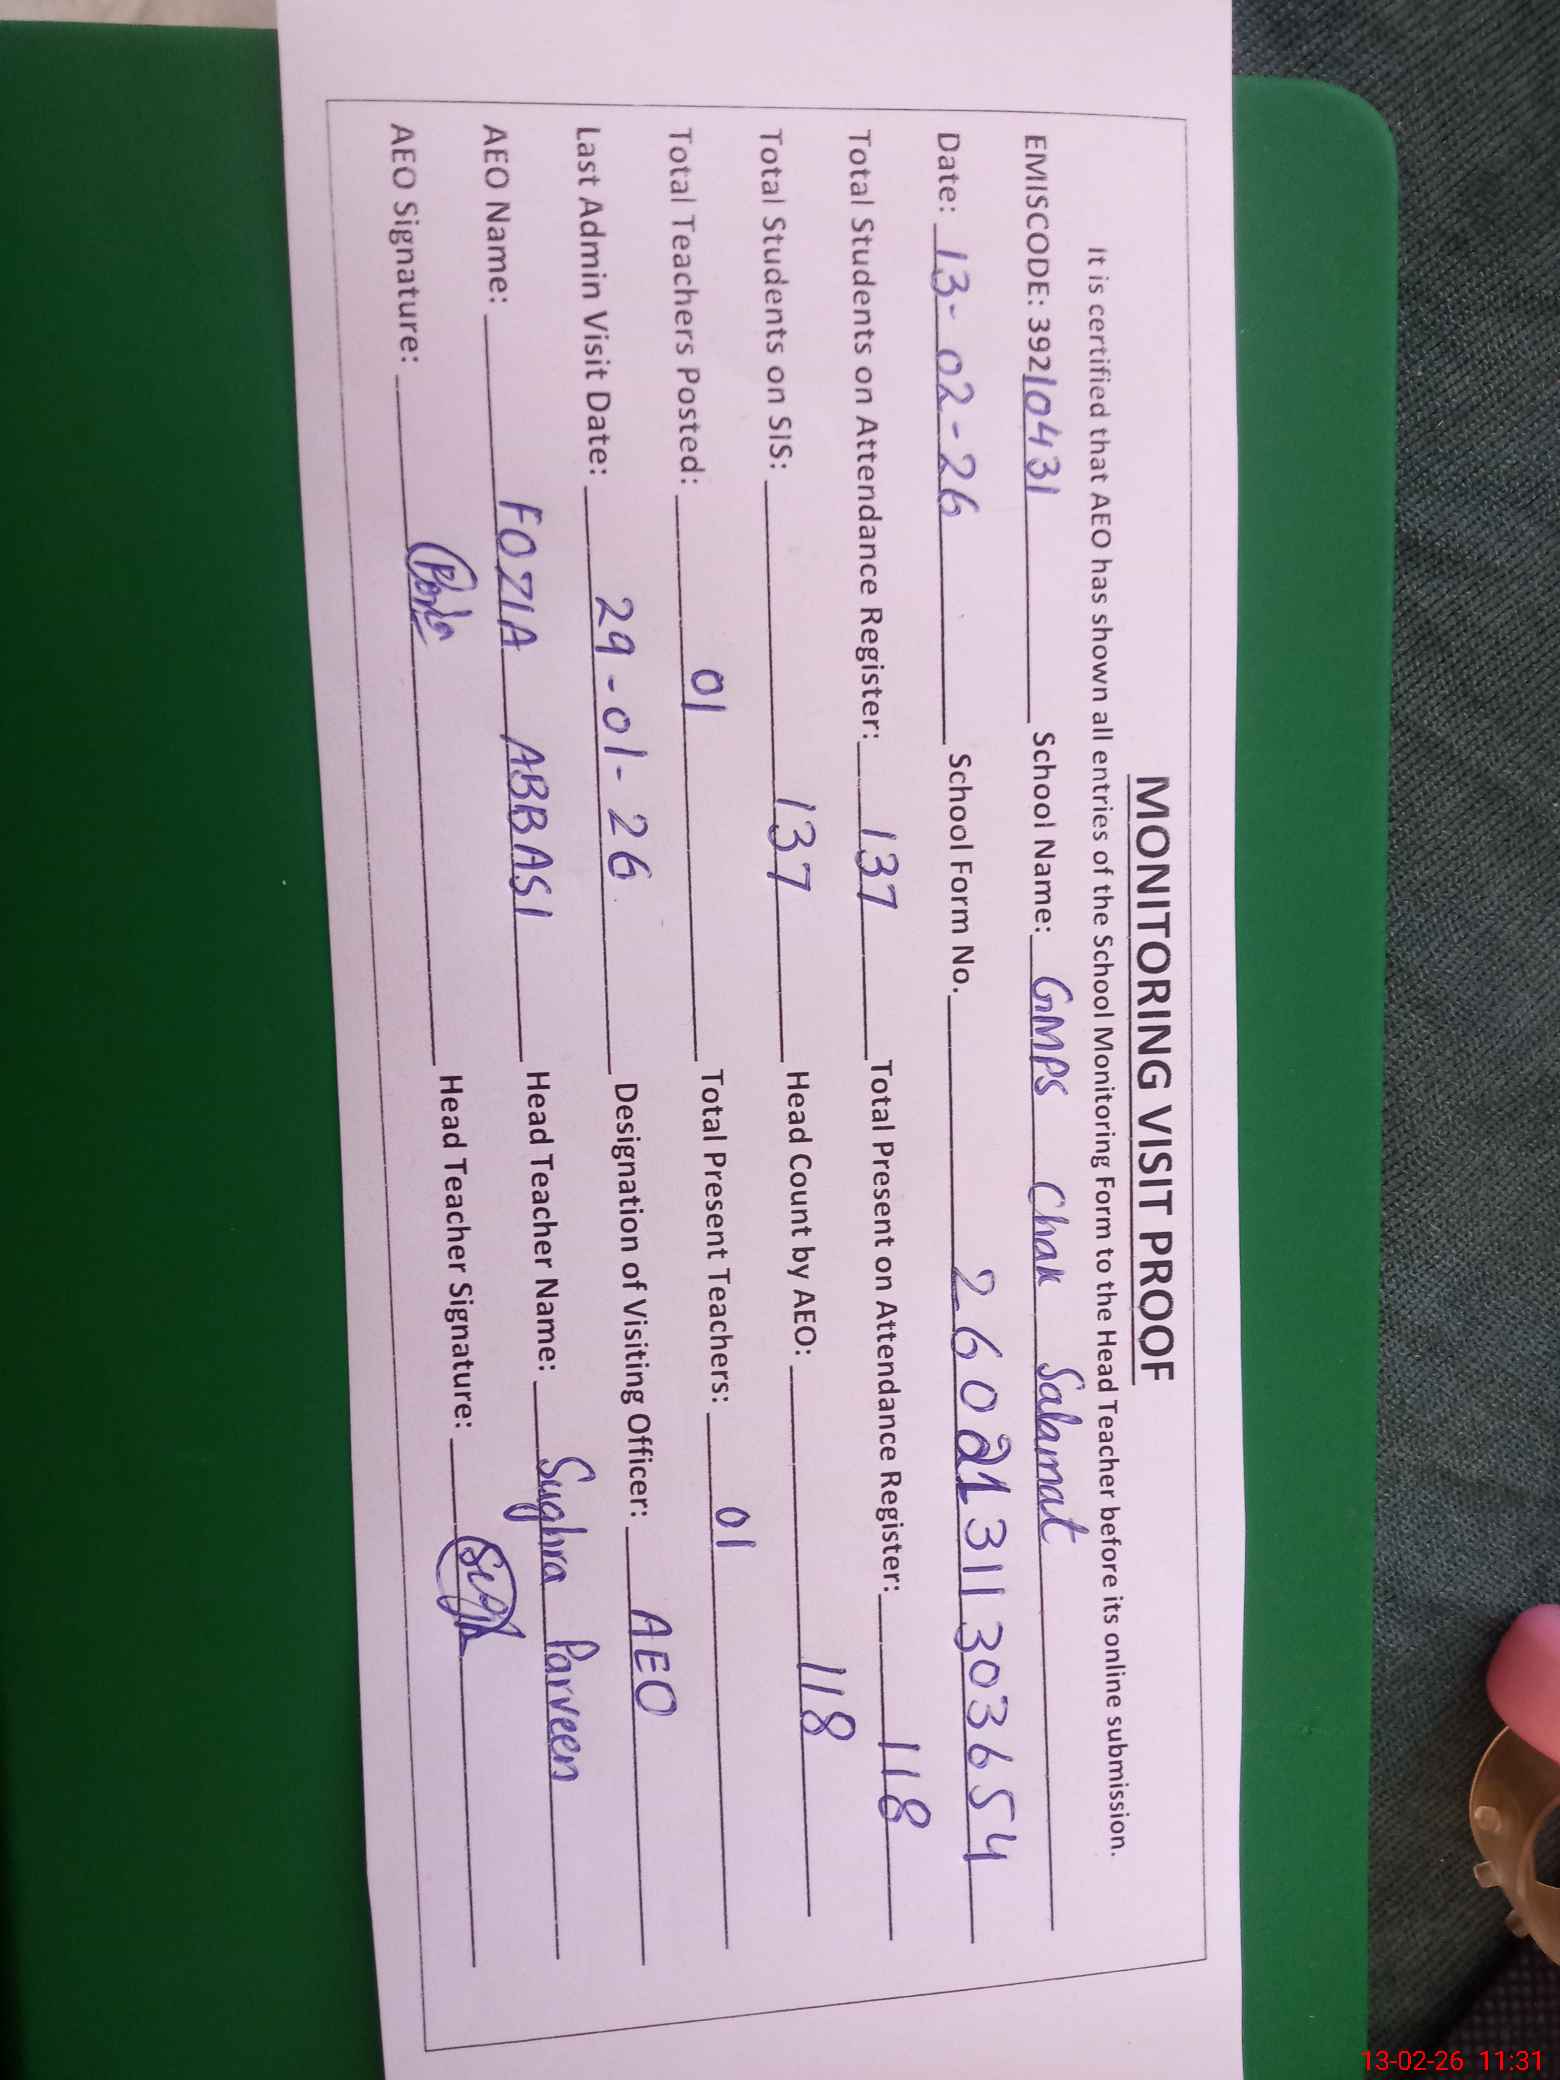 MONITORING VISIT PROOF
It is certified that AEO has shown all entries of the School Monitoring Form to the Head Teacher before its online submission.
EMISCODE: 39210431 School Name: GMPS Chak Salamat
Date: 13-02-26 School Form No. 2602131130 3654
Total Students on Attendance Register: 137 Total Present on Attendance Register: 118
Total Students on SIS: 137 Head Count by AEO: 118
Total Teachers Posted: 01 Total Present Teachers: 01
Last Admin Visit Date: 29-01-26 Designation of Visiting Officer: AEO
AEO Name: FOZIA ABBASI Head Teacher Name: Sughra Parveen
AEO Signature: Head Teacher Signature:
13-02-26 11:31